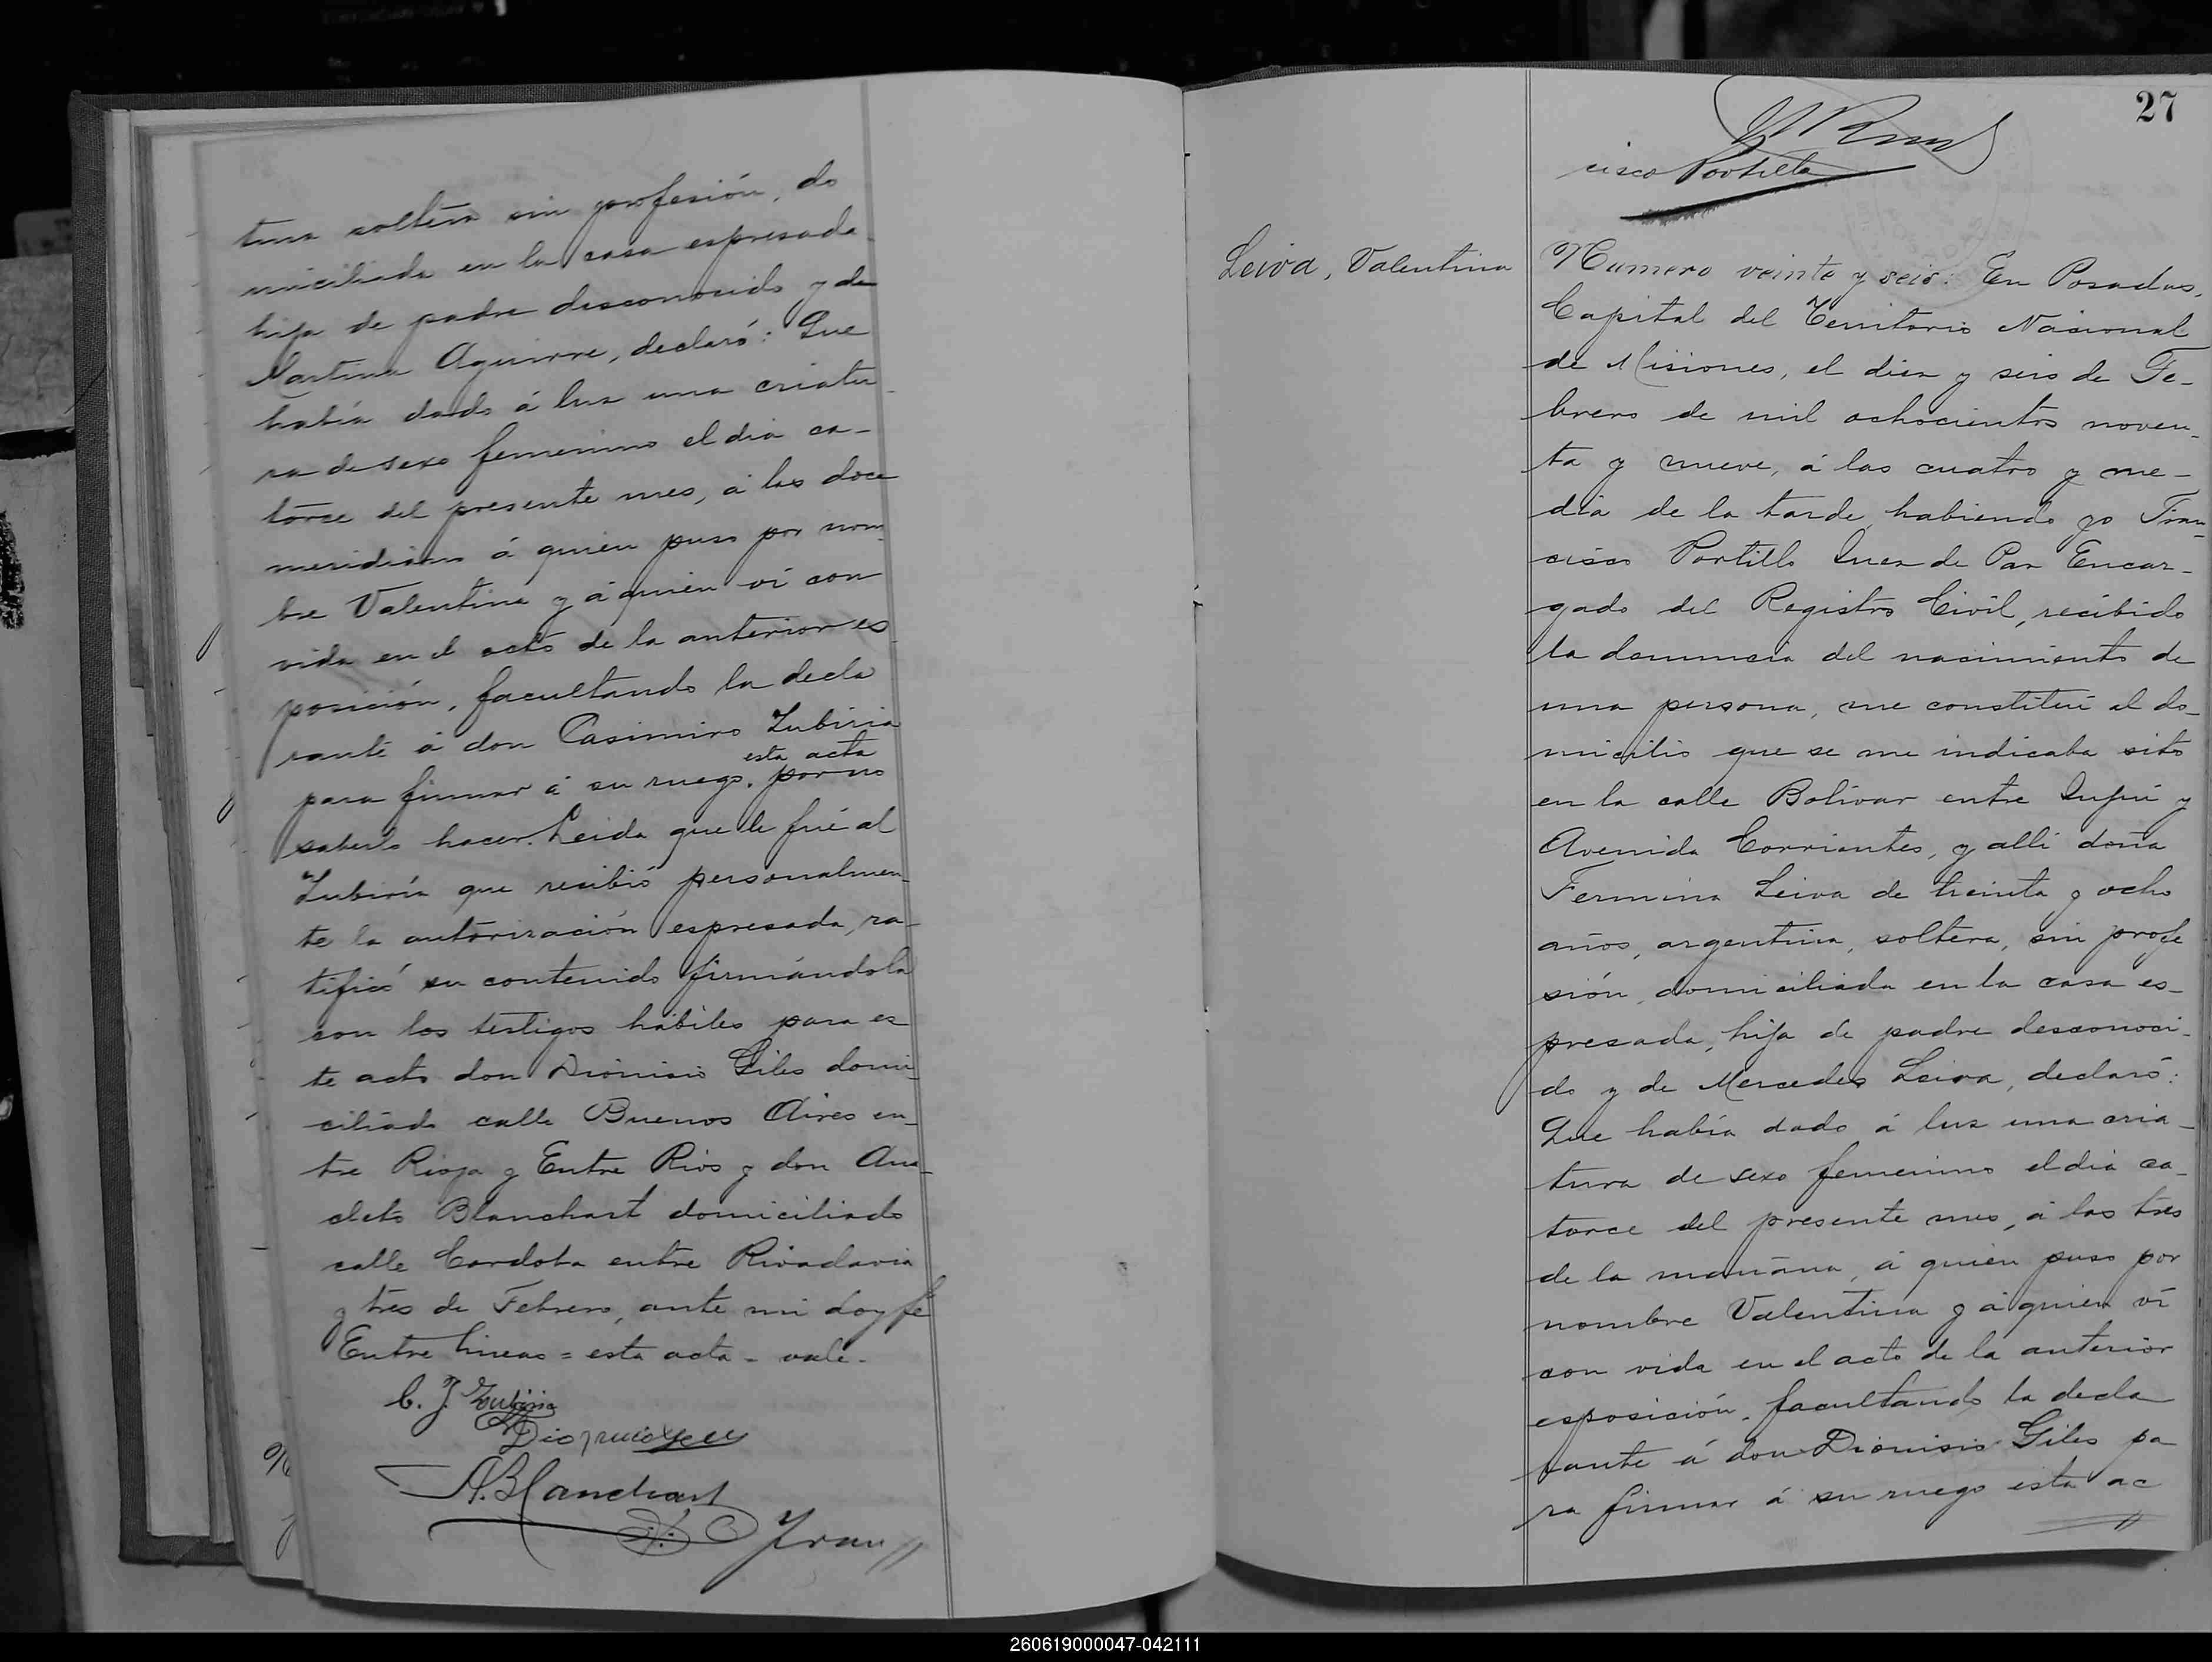 tina soltera sin profesión, do
miciliada en la casa espresada
hija de padre desconocido y de
Martina Aguirre, declaró: Que
había dado á luz una criatu
ra de sexo femenino el dia ca-
torce del presente mes, á las doce
meridiano á quien puso por nom
bre Valentina y á quien ví con
vida en el acto de la anterior es
posición, facultando la decla
rante á don Casimiro Zubiria
esta acta
para firmar á su ruego. por no
saberlo hacer. Leida que le fué al
Zubiría que recibió personalmen
te la autorización espresada, ra-
tificó su contenido firmándola
con los testigos hábiles para es
te acto don Dionisio Giles domi
ciliado calle Buenos Aires en
tre Rioja y Entre Rios y don Ana
cleto Blanchart domiciliado
calle Cordoba entre Rivadavia
y tres de Febrero, ante mi doy fé
Entre lineas = esta acta - vale -
C. J. Zubiria
Dionisio Giles
A. Blanchart
Fran //
27
cisco Portillo
Leiva, Valentina
Numero veinte y seis. En Posadas,
Capital del Territorio Nacional
de Misiones, el diez y seis de Fe-
brero de mil ochocientos noven-
ta y nueve, á las cuatro y me-
dia de la tarde, habiendo yo Fran
cisco Portillo Juez de Paz Encar-
gado del Registro Civil, recibido
la denuncia del nacimiento de
una persona, me constituí al do-
micilio que se me indicaba sito
en la calle Bolívar entre Jujui y
Avenida Corrientes, y alli doña
Fermina Leiva de treinta y ocho
años, argentina, soltera, sin profe
sión, domiciliada en la casa es-
presada, hija de padre desconoci-
do y de Mercedes Leiva, declaró:
Que había dado á luz una cria-
tura de sexo femenino el dia ca-
torce del presente mes, á las tres
de la mañana, á quien puso por
nombre Valentina y á quien ví
con vida en el acto de la anterior
esposición, facultando la decla
rante á don Dionisio Giles pa
ra firmar á su ruego esta ac
//
260619000047-042111